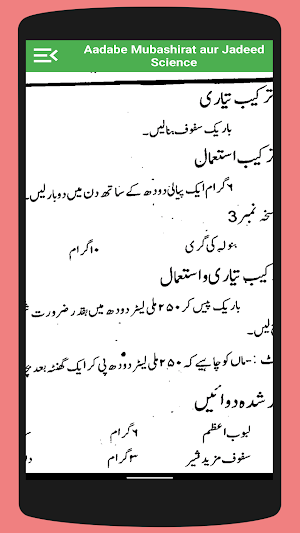 Aadabe Mubashirat aur Jadeed
Science
ترکیب تیاری
باریک سفوف بنالیں۔
ترکیب استعمال
۶ گرام ایک پیالی دودھ کے ساتھ دن میں دوبار لیں۔
نمبر 3
بنولہ کی گری ۱۰ گرام
ترکیب تیاری و استعمال
باریک پیس کر ۲۵۰ ملی لیٹر دودھ میں بقدر ضرورت
لیں۔
:- ماں کو چاہیے کہ ۲۵۰ ملی لیٹر دودھ پی کر ایک گھنٹہ بعد
شدہ دوائیں
لبوب اعظم ۶ گرام
سفوف مزید شیر ۳ گرام